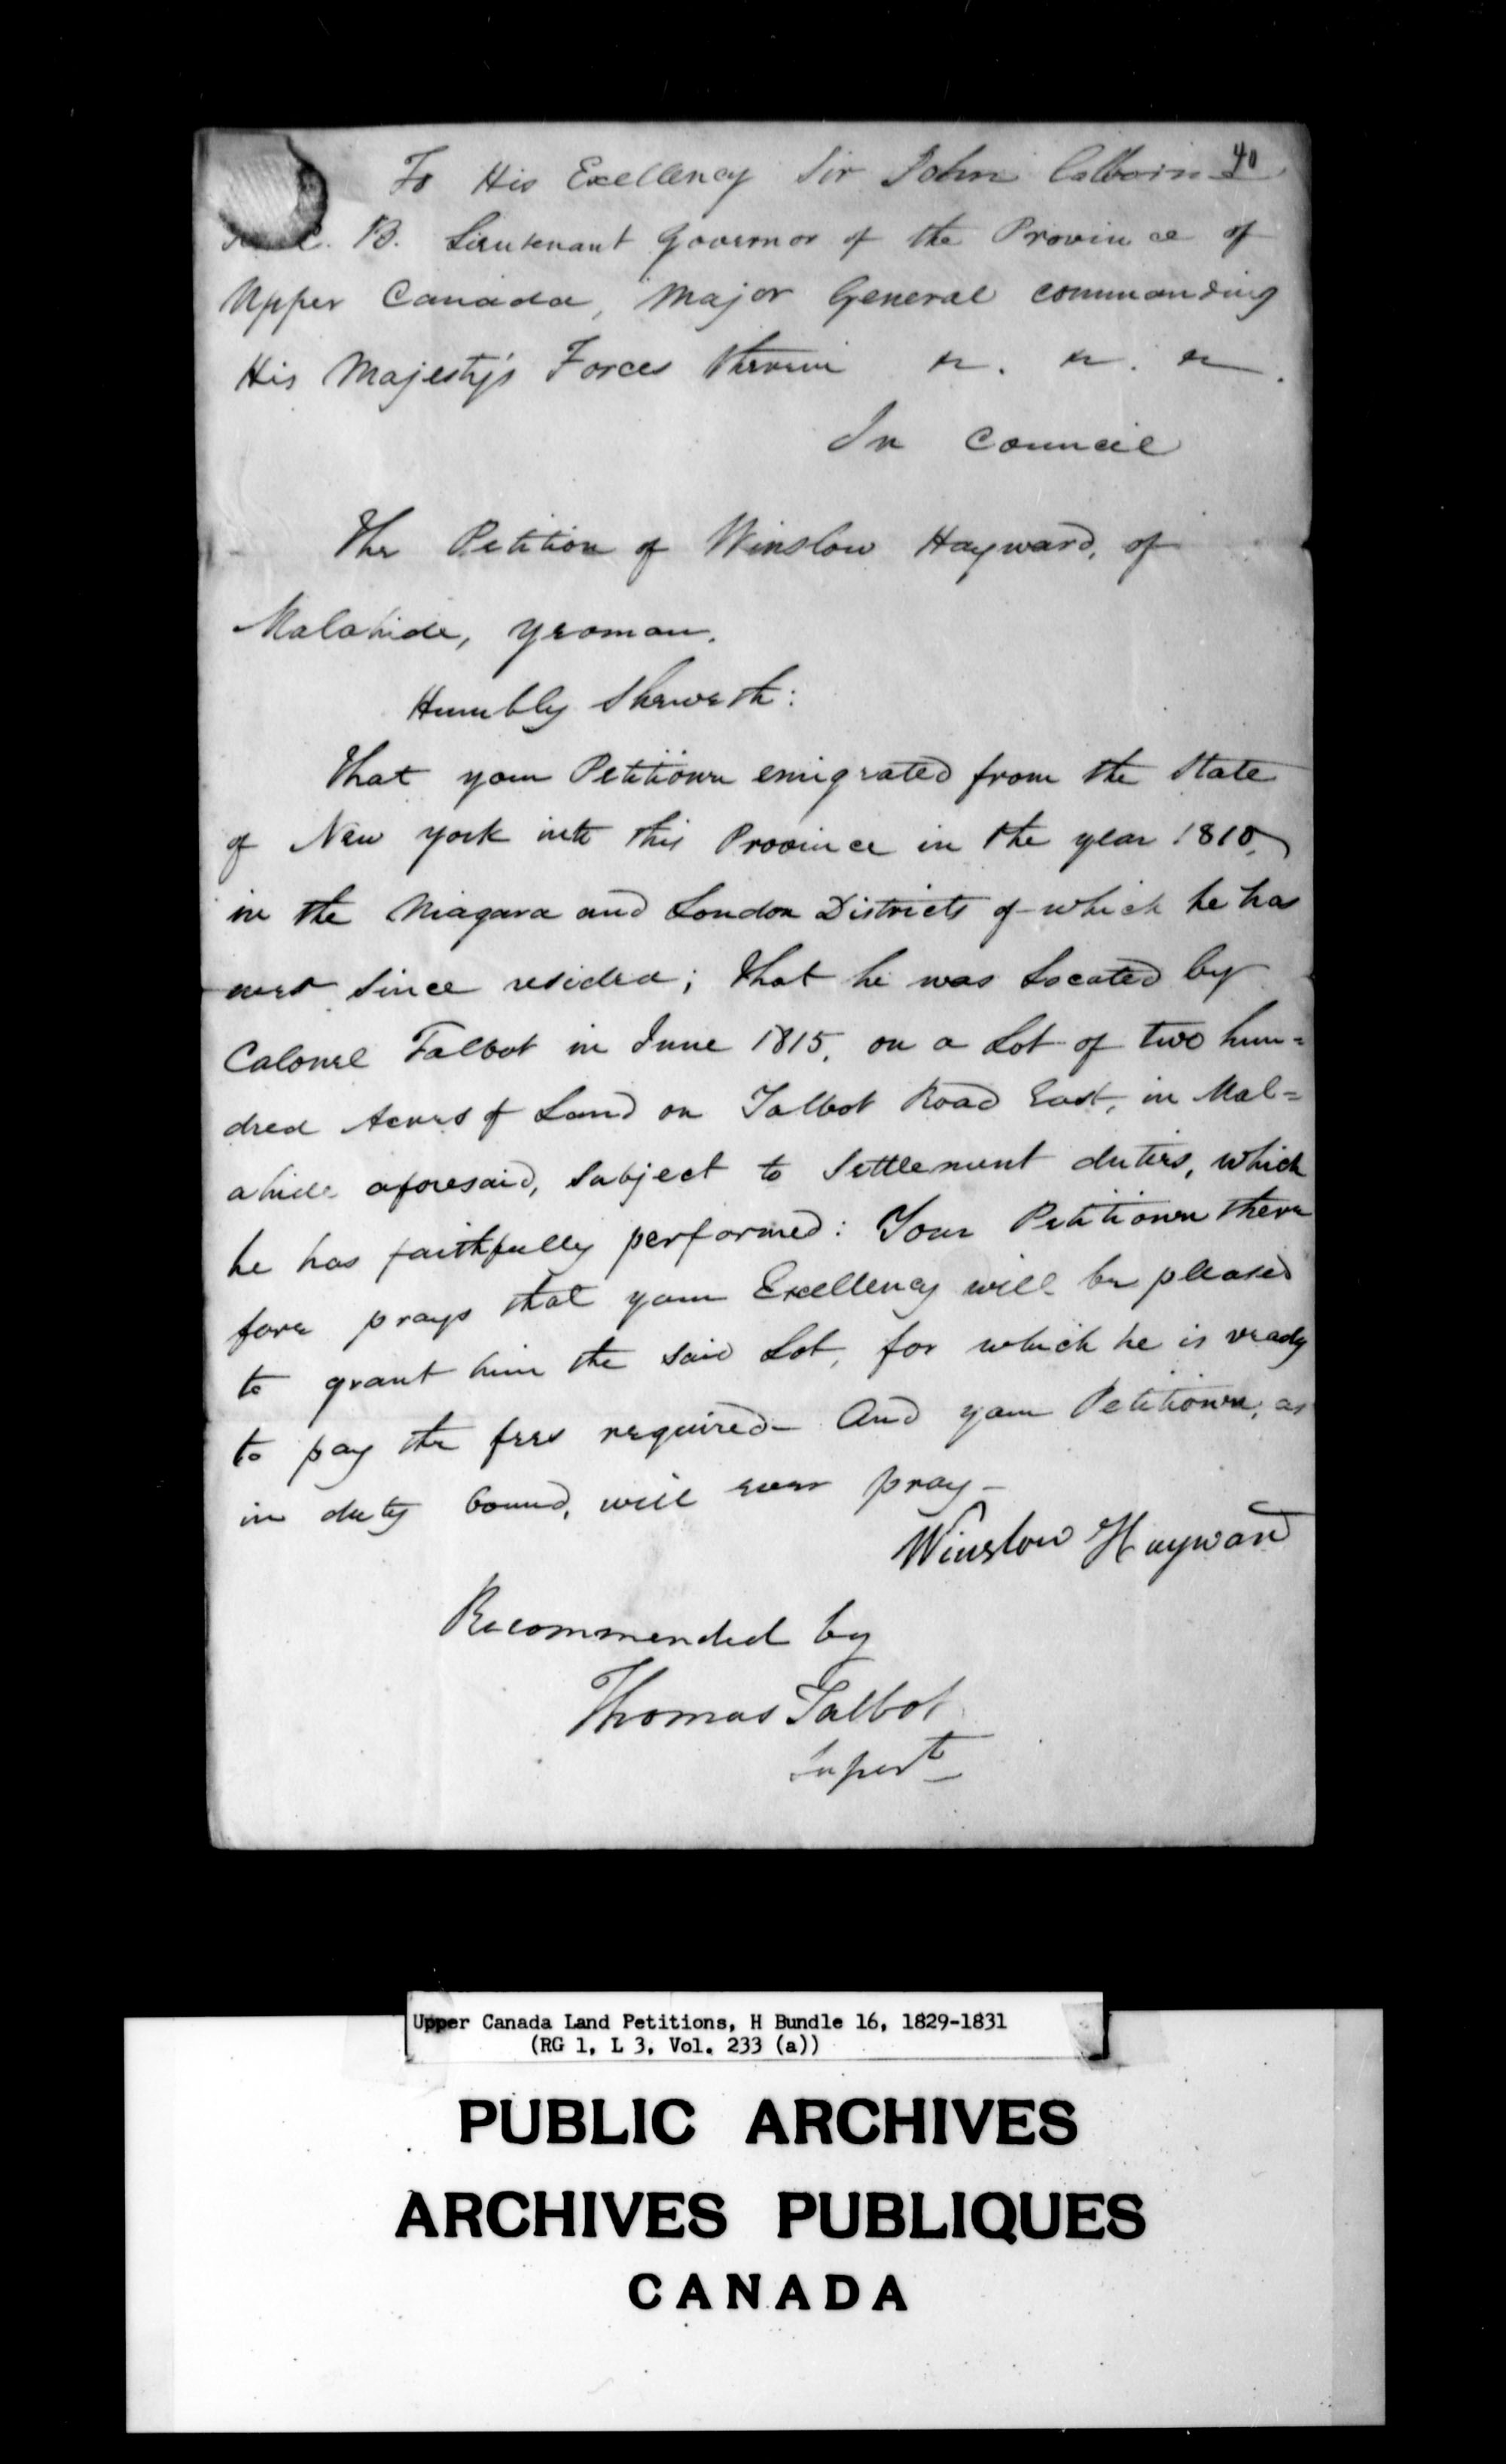 40
To His Excellency Sir John Colborne
K. C. B. Lieutenant Governor of the Province of
Upper Canada, Major General commanding
His Majesty's Forces therein &c. &c. &c.
In Council
The Petition of Winslow Hayward, of
Malahide, Yeoman.
Humbly Sheweth:
That your Petitioner emigrated from the State
of New York into this Province in the year 1810,
in the Niagara and London Districts of which he has
ever since resided; that he was located by
Colonel Talbot in June 1815, on a Lot of two hun=
dred Acres of Land on Talbot Road East, in Mal=
ahide aforesaid, Subject to Settlement duties, which
he has faithfully performed: Your Petitioner there
fore prays that your Excellency will be pleased
to grant him the said Lot, for which he is ready
to pay the fees required— And your Petitioner, as
in duty bound, will ever pray—
Winslow Hayward
Recommended by
Thomas Talbot
Supert
Upper Canada Land Petitions, H Bundle 16, 1829-1831
(RG 1, L 3, Vol. 233 (a))
PUBLIC ARCHIVES
ARCHIVES PUBLIQUES
CANADA